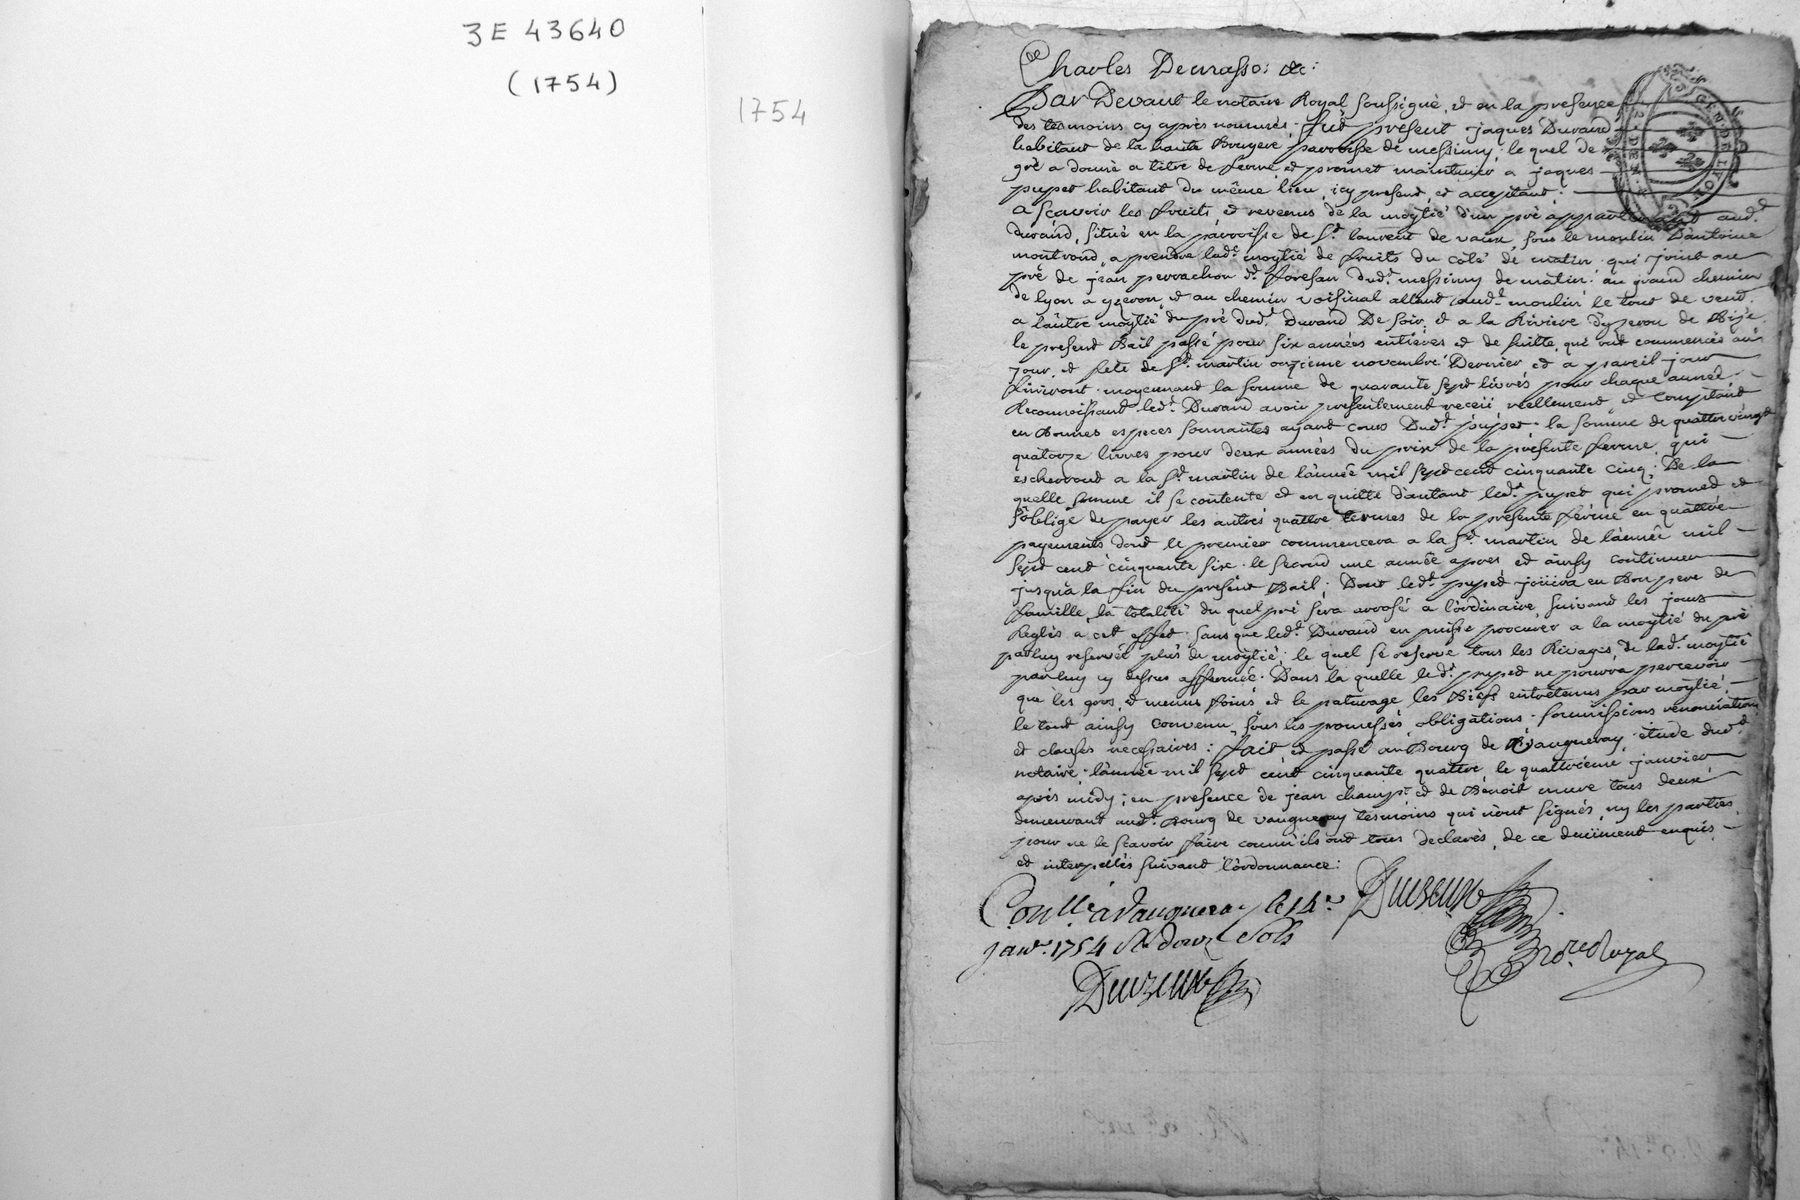 3 E 43640
(1754)
1754
Charles
Par Devant le notaire Royal soussigné, et en la presence
des tesmoins cy après nommés. fut present jaques Durand
habitant de la haute Bruyere parroisse de messimy, le quel de
gré a donné a titre de ferme et promet maintenir a jaques
pupet habitant du même lieu, icy present et acceptant:
a scavoir les fruits et revenus de la moytié d'un pré appartenant aud.t
Durand, situé en la parroisse de st. laurent de vaux, sous le moulin D'antoine
montrond, a prendre lad.e moytié de fruits du coté de matin qui joint au
pré de jean perrachon dud.t messimy de matin. au grand chemin
de lyon a yzeron, et au chemin voisinal allant aud.t moulin le tout de vend.
a l'autre moytié du pré dud.t Durand De soir, et a la Riviere d'yzeron de Bize.
le present Bail passé pour six années entieres et de suitte, qui ont commencés au
jour et fete de st. martin onzieme novembre Dernier et a pareil jour
finiront. moyennant la somme de quarante sept livres pour chaque année.
Reconnoissant led.t Durand avoir presentement receü réellement et comptant
en Bonnes especes sonnantes ayant cours Dud.t pupet. la somme de quattre vingt
quatorze livres pour deux années du prix de la présente ferme, qui
escherront a la st. martin de l'année mil sept cent cinquante cinq. De la
quelle somme il se contente et en quitte d'autant led.t pupet qui promet et
s'oblige de payer les autres quattre termes de la presente ferme en quattre
payements dont le premier commencera a la st. martin de l'année mil
sept cent cinquante six. le second une année apres et ainsy continuer
jusqu'a la fin du present Bail; Dont led.t pupet joüira en Bon pere de
famille, la totalité du quel pré sera arrosé a l'ordinaire, suivant les jours
Reglés a cet effet. sans que led.t Durand en puisse procurer a la moytié du pré
par luy reservée plus de moytié; le quel se reserve tous les Rivages de lad.e moytié
par luy cy dessus affermée. Dans la quelle led.t pupet ne pourra percevoir
que les gros, et menus foins et le paturage les Biefs entretenus par moytié.
le tout ainsy convenu, sous les promesses obligations. soumissions renonciations
et clauses necessaires: fait et passé au Bourg de Vaugneray étude dud.t
notaire. l'année mil sept cent cinquante quattre, le quattrieme janvier
après midy; en presence de jean et de Benoit tous deux
demeurant aud.t Bourg de vaugneray tesmoins qui n'ont signés, ny les parties
pour ne le scavoir faire comm'ils ont tous declarés, de ce deüiment enquis
et interpellés suivant l'ordonnance:
Con.llé a Vaugneray le 14.e
janv.r 1754 douze sols
no.re Royal